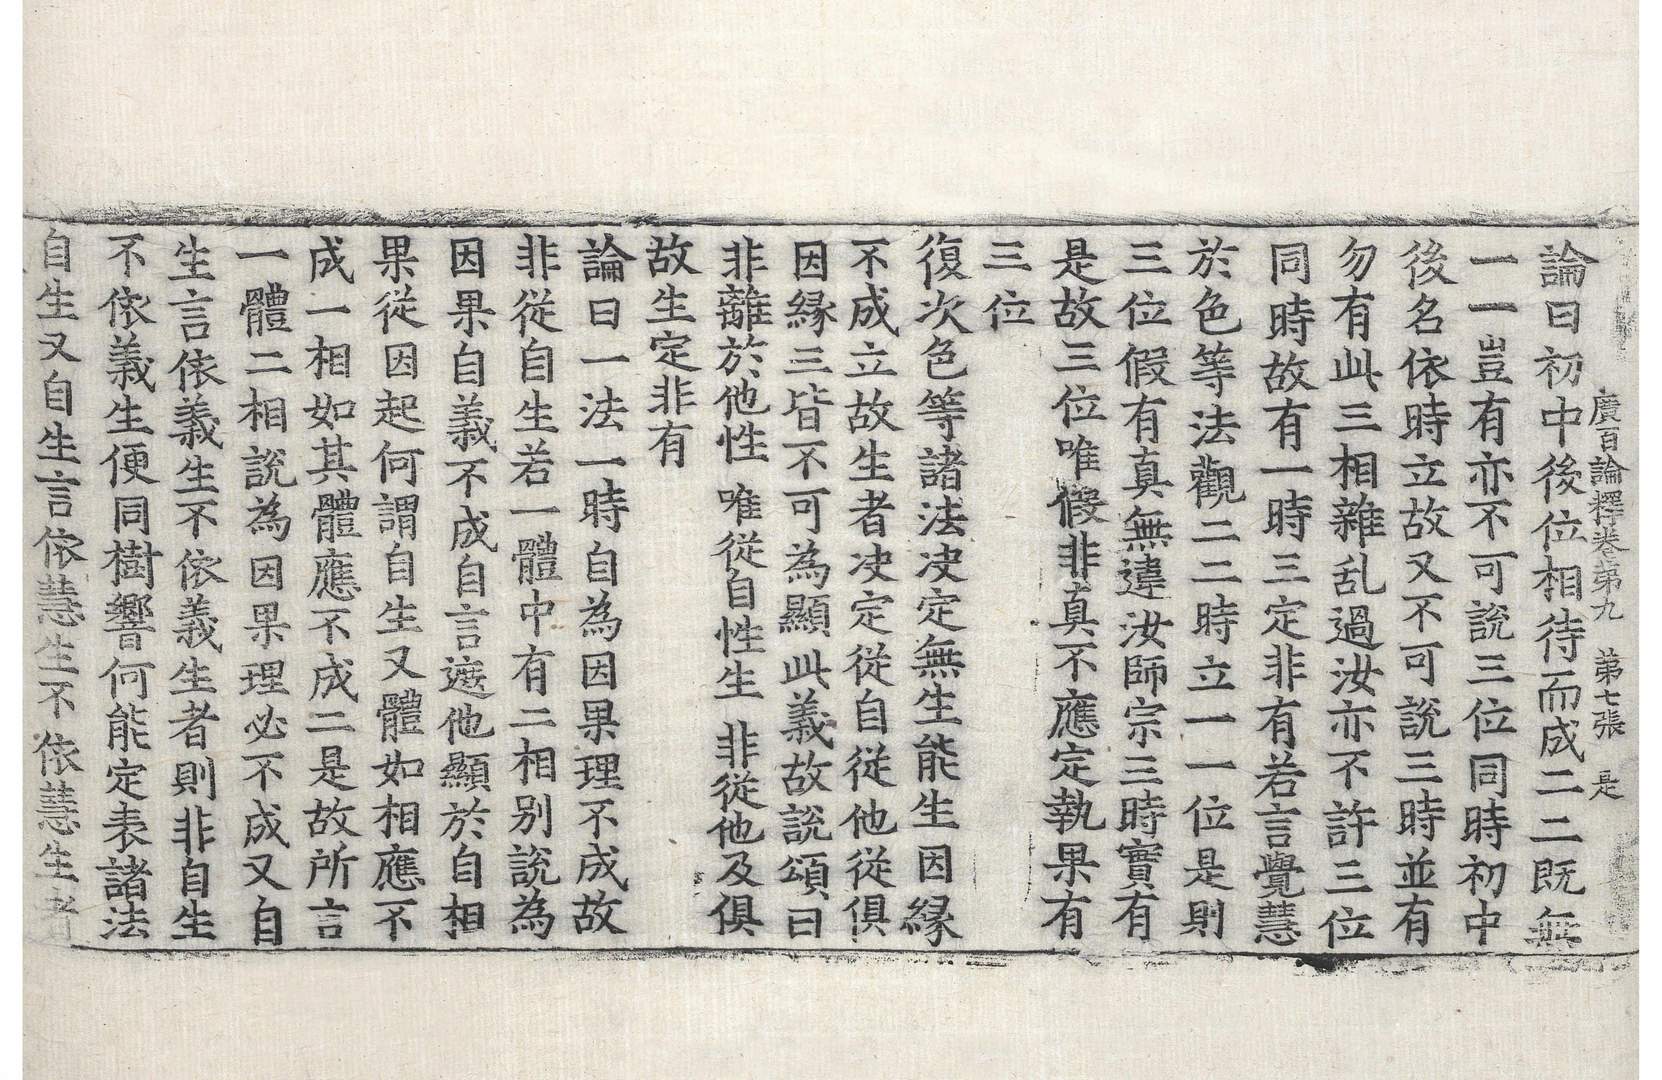 廣百論釋卷第九　第七張　是
論曰初中後位相待而成二二既無
一一豈有亦不可說三位同時初中
後名依時立故又不可說三時並有
勿有此三相雜乱過汝亦不許三位
同時故有一時三定非有若言覺慧
於色等法觀二二時立一一位是則
三位假有真無違汝師宗三時實有
是故三位唯假非真不應定執果有
三位
復次色等諸法决定無生能生因緣
不成立故生者决定從自從他從俱
因緣三皆不可為顯此義故說頌曰
非離於他性　唯從自性生　非從他及俱
故生定非有
論曰一法一時自為因果理不成故
非從自生若一體中有二相别說為
因果自義不成自言遮他顯於自相
果從因起何謂自生又體如相應不
成一相如其體應不成二是故所言
一體二相說為因果理必不成又自
生言依義生不依義生者則非自生
不依義生便同樹響何能定表諸法
自生又自生言依慧生不依慧生者